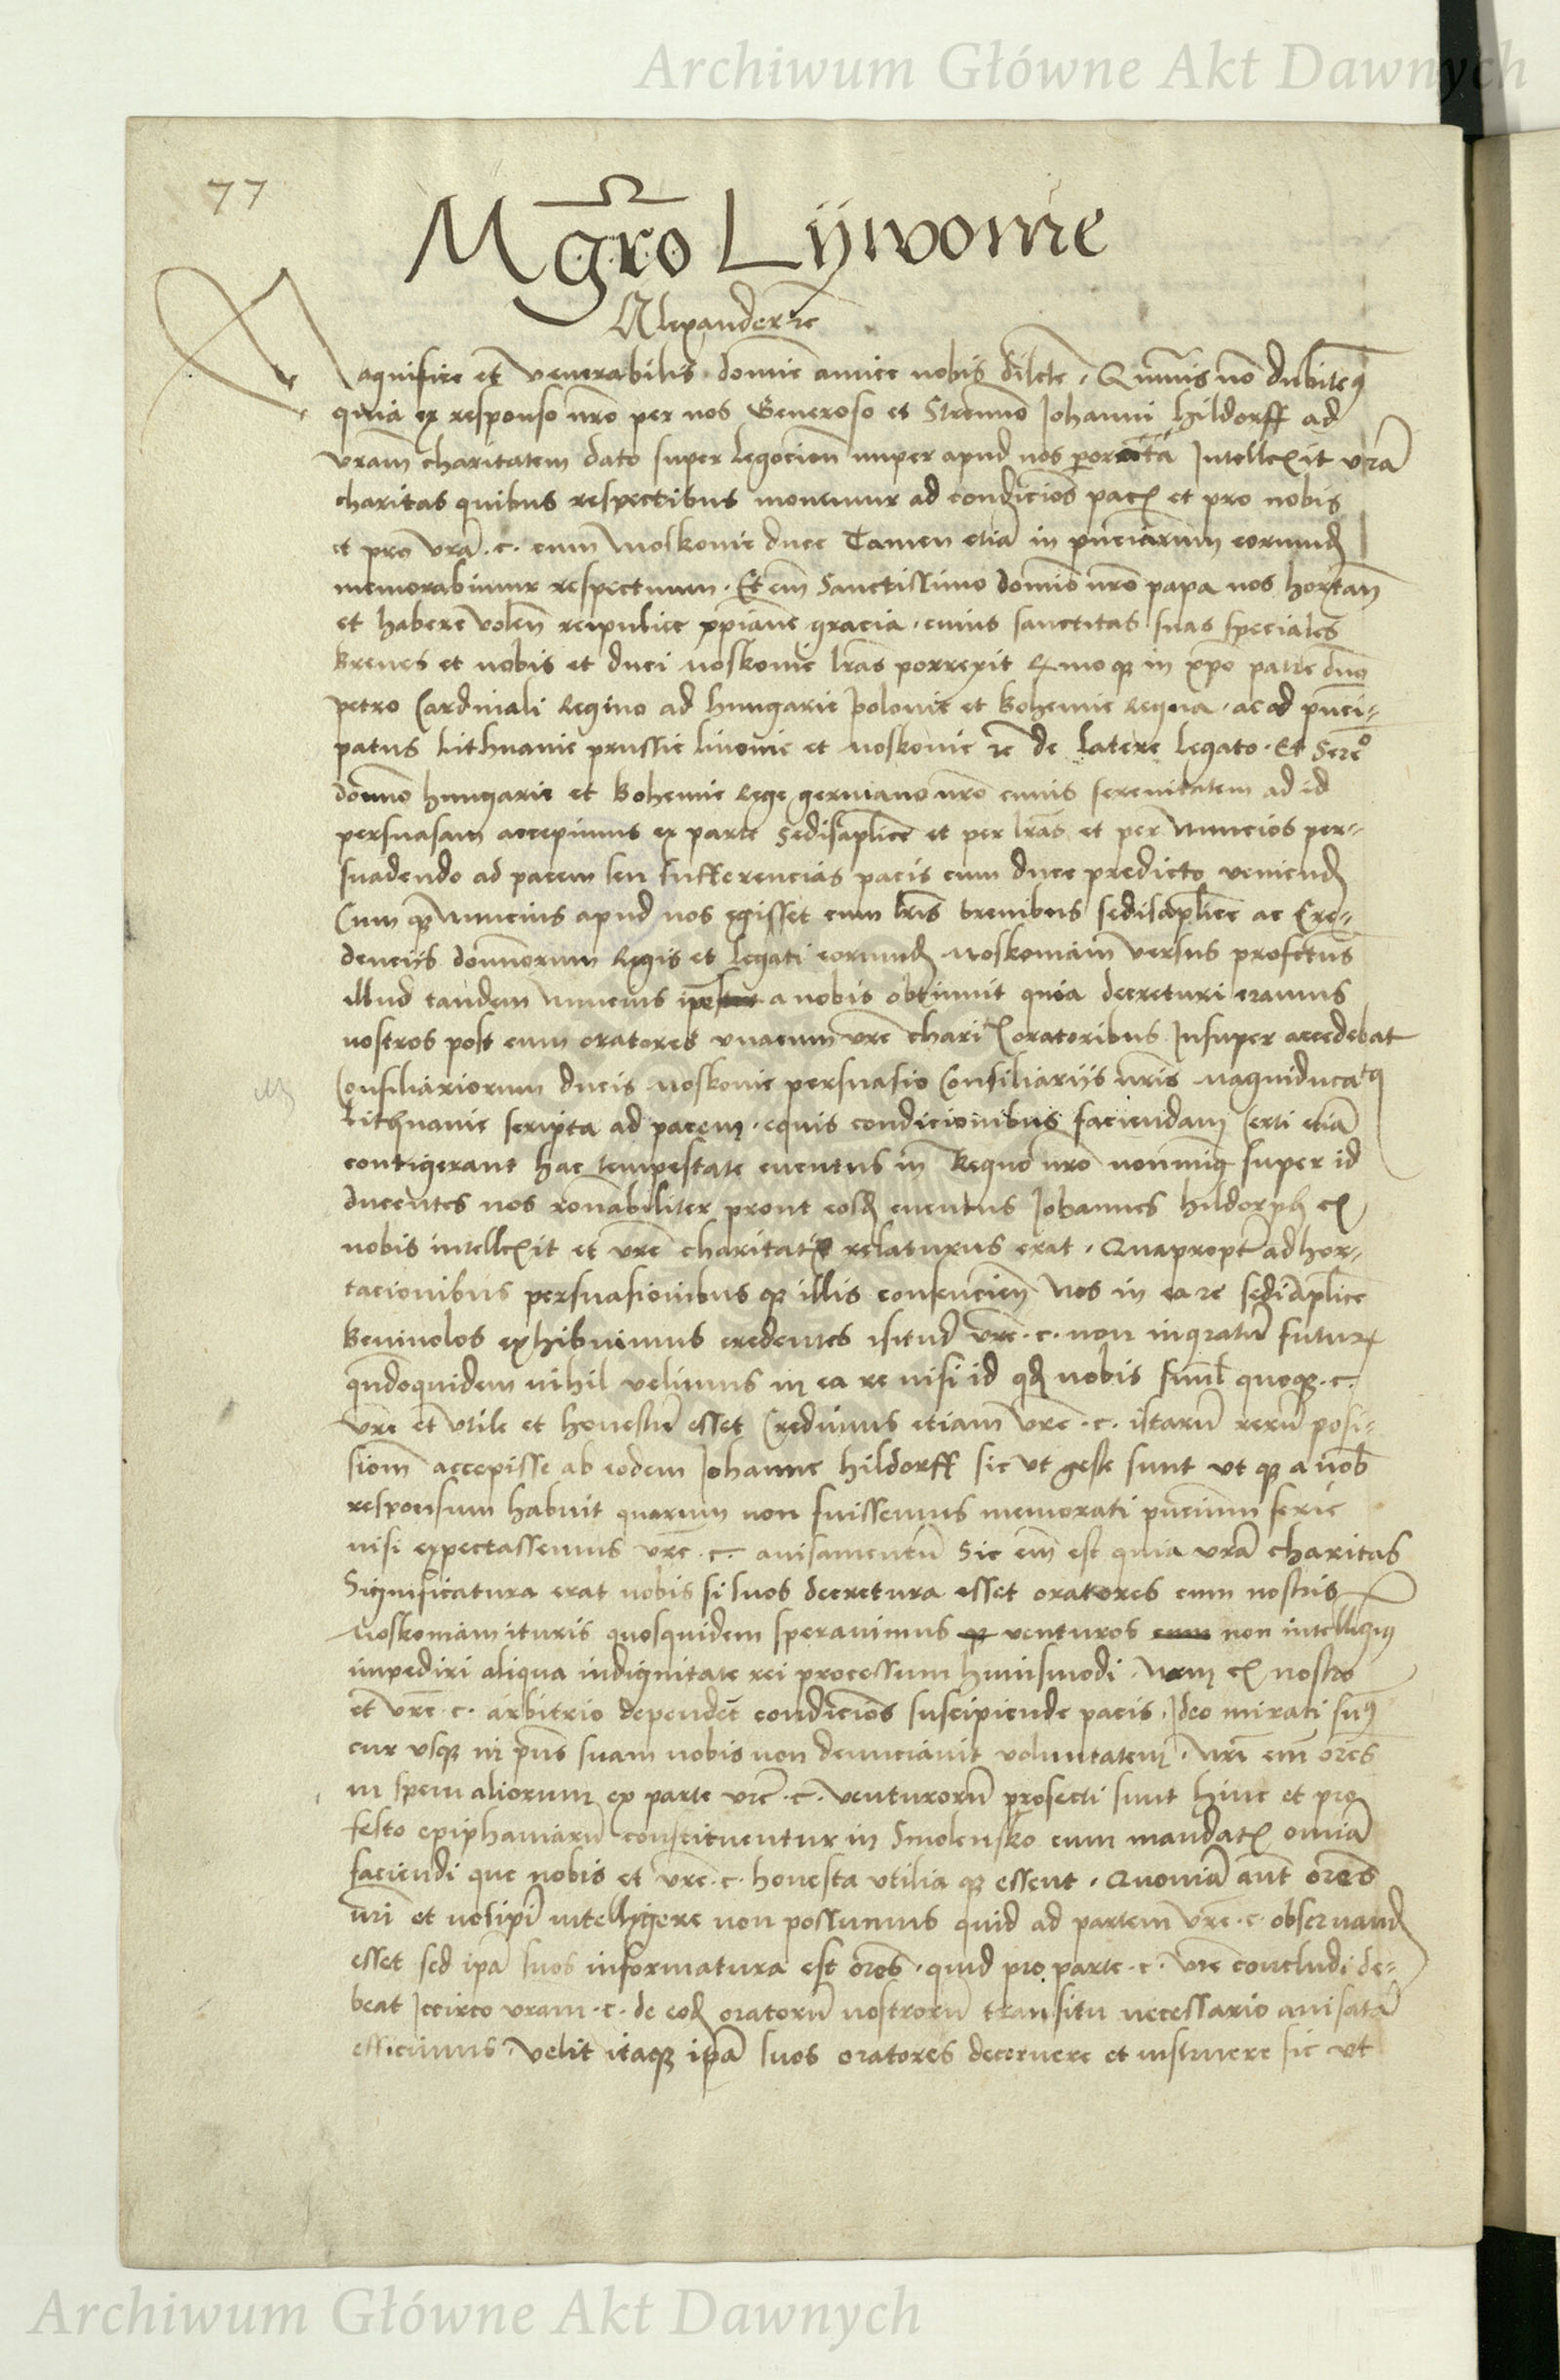 Archiwum Główne Akt Dawnych
77
Mgr̄o Lywonie
Alexander ꝛc
Magnifice et venerabilis domīe amice nobis dilctē. Qūmuis nō dubitem⁹
quia ex responso nr̄o per nos Generoso et Strennuo Johanni hildorff ad
vram̄ charitatem dato super legocioñ nuper apud nos porrecta Intellexit vrā
charitas quibus respectibus mouemur ad condicioēs pacꝭ et pro nobis
et pro vrā .c. cum Moskouie duce Tamen etiā in pñciarum eorumdꝫ
memorabimur respectuum. Et em̄ Sanctissimo domīo nr̄o papa nos hortañ
et habere voleñ reipublice xp̄iane gracia. cuius sanctitas suas speciales
Breues et nobis et duci Moskouie lrās porrexit Rmoqꝫ in xp̄o patre dn̄o
petro Cardinali Regino ad hungarie polonie et Bohemie Regna. ac ad pn̄ci-
patus lithuanie prussie liuonie et Moskouie ꝛc de latere legato. Et Sereº
domīo hungarie et Bohemie Rege germano nr̄o cuius serenitatem ad id
persuasam accepimus ex parte Sedis aplice et per lrās et per Nuncios per-
suadendo ad pacem seu sufferencias pacis cum duce predicto veniendꝫ
Cumqꝫ Nuncius apud nos egisset cum lris breuibus sedis aplice ac Cre-
denciis dominorum Regis et legati eorumdꝫ Moskouiam versus profctūs
illud tandem Nuncius ip̄e a nobis obtinuit quia decreturi eramus
nostros post eum oratores vnacum vrē charitꝭ oratoribus Insuper accedebat
Consiliariorum ducis Moskouie persuasio Consiliariis nr̄is Magniducatꝰ
lithuanie scripta ad pacem. equis condicionibus faciendam Certi etiā
contigerant hac tempestate euentus in Regno nr̄o nonnulli super id
ducentes nos rōnabiliter prout eosdꝫ euentus Johannes hildorph ex
nobis intellexit et vrē charitati relaturus erat. Quapropt̄ adhor-
tacionibus persuasionibusqꝫ illis consencieñ Nos in ea re sedi aplice
Beniuolos exhibuimus credentes istud vrē .c. non ingratū futurꝝ
qñdoquidem nihil velimus in ea re nisi id qdꝫ nobis siml̄ quoqꝫ .c.
vrē et vtile et honestū esset Credimus etiam vrē .c. istarū rerū posi-
sioñ accepisse ab eodem Johanne hildorff sic vt geste sunt vtqꝫ a nob̄
responsum habuit quarum non fuissemus memorati pn̄cium serie
nisi expectassemus vrē .c. auisamentū Sic em̄ est quia vrā charitas
Significatura erat nobis si suos decretura esset oratores cum nostris
Moskouiam ituris quosquidem sperauimus venturos non intelligim⁹
impediri aliqua indignitate rei processum huiusmodi. Nam ex nostro
et vrē .c. arbitrio dependēt condicioēs suscipiende pacis. Ideo mirati sum⁹
cur vsqꝫ in pn̄s suam nobis non denunciauit voluntatem. Nr̄i em̄ orēs
in spem aliorum ex parte vrē .c. venturorū profecti sunt hinc et pro
festo epiphaniarū constituentur in Smolensko cum mandatꝭ omīa
faciendi que nobis et vrē .c. honesta vtiliaqꝫ essent. Quoniā aūt orēs
nr̄i et nosip̄i intelligere non possumus quid ad partem vrē .c. obseruandꝫ
esset sed ip̄a suos informatura est orēs. quid pro parte .c. vrē concludi de-
beat Iccirco vram .c. de eodꝫ oratorū nostrorū transitu necessario auisatā
efficimus. velit itaqꝫ ip̄a suos oratores decernere et instruere sic vt
Archiwum Główne Akt Dawnych